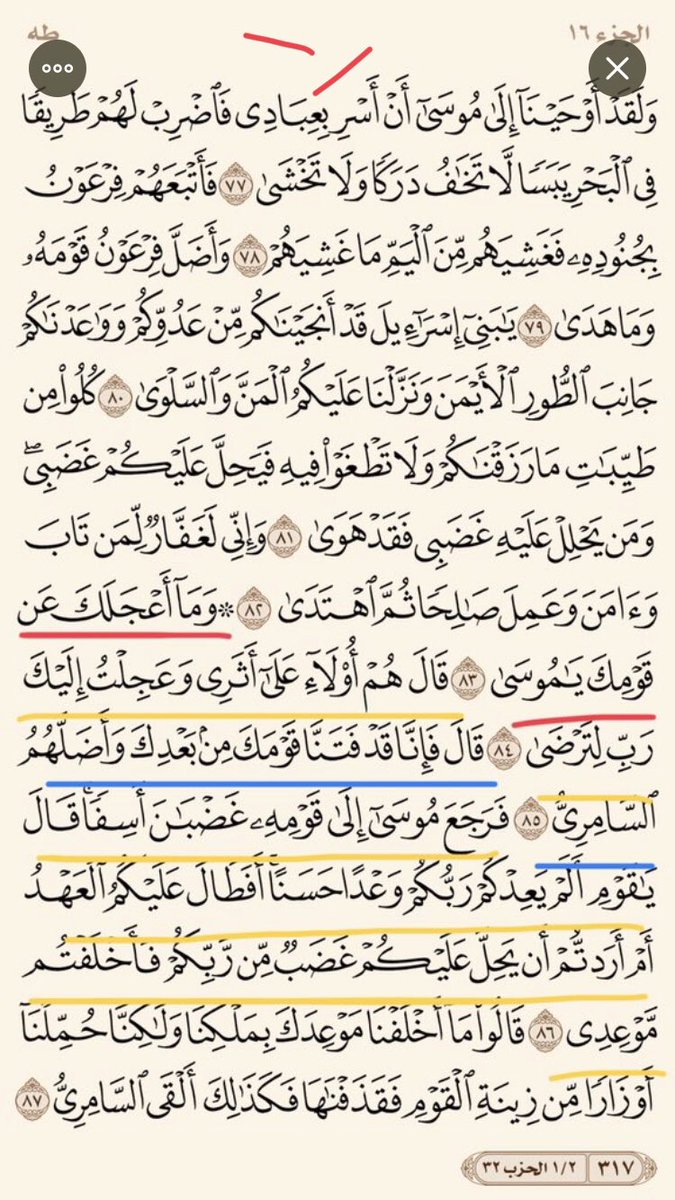 الجزء ١٦
طه
وَلَقَدۡ أَوۡحَيۡنَآ إِلَىٰ مُوسَىٰٓ أَنۡ أَسۡرِ بِعِبَادِي فَٱضۡرِبۡ لَهُمۡ طَرِيقٗا
فِي ٱلۡبَحۡرِ يَبَسٗا لَّا تَخَٰفُ دَرَكٗا وَلَا تَخۡشَىٰ ٧٧ فَأَتۡبَعَهُمۡ فِرۡعَوۡنُ
بِجُنُودِهِۦ فَغَشِيَهُم مِّنَ ٱلۡيَمِّ مَا غَشِيَهُمۡ ٧٨ وَأَضَلَّ فِرۡعَوۡنُ قَوۡمَهُۥ
وَمَا هَدَىٰ ٧٩ يَٰبَنِيٓ إِسۡرَٰٓءِيلَ قَدۡ أَنجَيۡنَٰكُم مِّنۡ عَدُوِّكُمۡ وَوَٰعَدۡنَٰكُمۡ
جَانِبَ ٱلطُّورِ ٱلۡأَيۡمَنَ وَنَزَّلۡنَا عَلَيۡكُمُ ٱلۡمَنَّ وَٱلسَّلۡوَىٰ ٨٠ كُلُواْ مِن
طَيِّبَٰتِ مَا رَزَقۡنَٰكُمۡ وَلَا تَطۡغَوۡاْ فِيهِ فَيَحِلَّ عَلَيۡكُمۡ غَضَبِيۖ
وَمَن يَحۡلِلۡ عَلَيۡهِ غَضَبِي فَقَدۡ هَوَىٰ ٨١ وَإِنِّي لَغَفَّارٞ لِّمَن تَابَ
وَءَامَنَ وَعَمِلَ صَٰلِحٗا ثُمَّ ٱهۡتَدَىٰ ٨٢ ۞ وَمَآ أَعۡجَلَكَ عَن
قَوۡمِكَ يَٰمُوسَىٰ ٨٣ قَالَ هُمۡ أُوْلَآءِ عَلَىٰٓ أَثَرِي وَعَجِلۡتُ إِلَيۡكَ
رَبِّ لِتَرۡضَىٰ ٨٤ قَالَ فَإِنَّا قَدۡ فَتَنَّا قَوۡمَكَ مِنۢ بَعۡدِكَ وَأَضَلَّهُمُ
ٱلسَّامِرِيُّ ٨٥ فَرَجَعَ مُوسَىٰٓ إِلَىٰ قَوۡمِهِۦ غَضۡبَٰنَ أَسِفٗاۚ قَالَ
يَٰقَوۡمِ أَلَمۡ يَعِدۡكُمۡ رَبُّكُمۡ وَعۡدًا حَسَنًاۚ أَفَطَالَ عَلَيۡكُمُ ٱلۡعَهۡدُ
أَمۡ أَرَدتُّمۡ أَن يَحِلَّ عَلَيۡكُمۡ غَضَبٞ مِّن رَّبِّكُمۡ فَأَخۡلَفۡتُم
مَّوۡعِدِي ٨٦ قَالُواْ مَآ أَخۡلَفۡنَا مَوۡعِدَكَ بِمَلۡكِنَا وَلَٰكِنَّا حُمِّلۡنَآ
أَوۡزَارٗا مِّن زِينَةِ ٱلۡقَوۡمِ فَقَذَفۡنَٰهَا فَكَذَٰلِكَ أَلۡقَى ٱلسَّامِرِيُّ ٨٧
٣١٧
١/٢ الحزب ٣٢